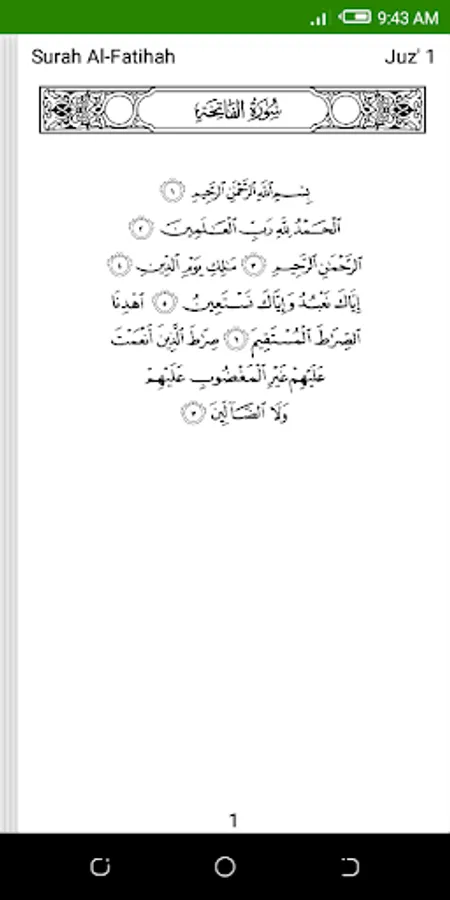 9:43 AM
Surah Al-Fatihah Juz' 1
سُورَةُ الفَاتِحَةِ
بِسْمِ ٱللَّهِ ٱلرَّحْمَٰنِ ٱلرَّحِيمِ ١
ٱلْحَمْدُ لِلَّهِ رَبِّ ٱلْعَٰلَمِينَ ٢
ٱلرَّحْمَٰنِ ٱلرَّحِيمِ ٣ مَٰلِكِ يَوْمِ ٱلدِّينِ ٤
إِيَّاكَ نَعْبُدُ وَإِيَّاكَ نَسْتَعِينُ ٥ ٱهْدِنَا
ٱلصِّرَٰطَ ٱلْمُسْتَقِيمَ ٦ صِرَٰطَ ٱلَّذِينَ أَنْعَمْتَ
عَلَيْهِمْ غَيْرِ ٱلْمَغْضُوبِ عَلَيْهِمْ
وَلَا ٱلضَّآلِّينَ ٧
1